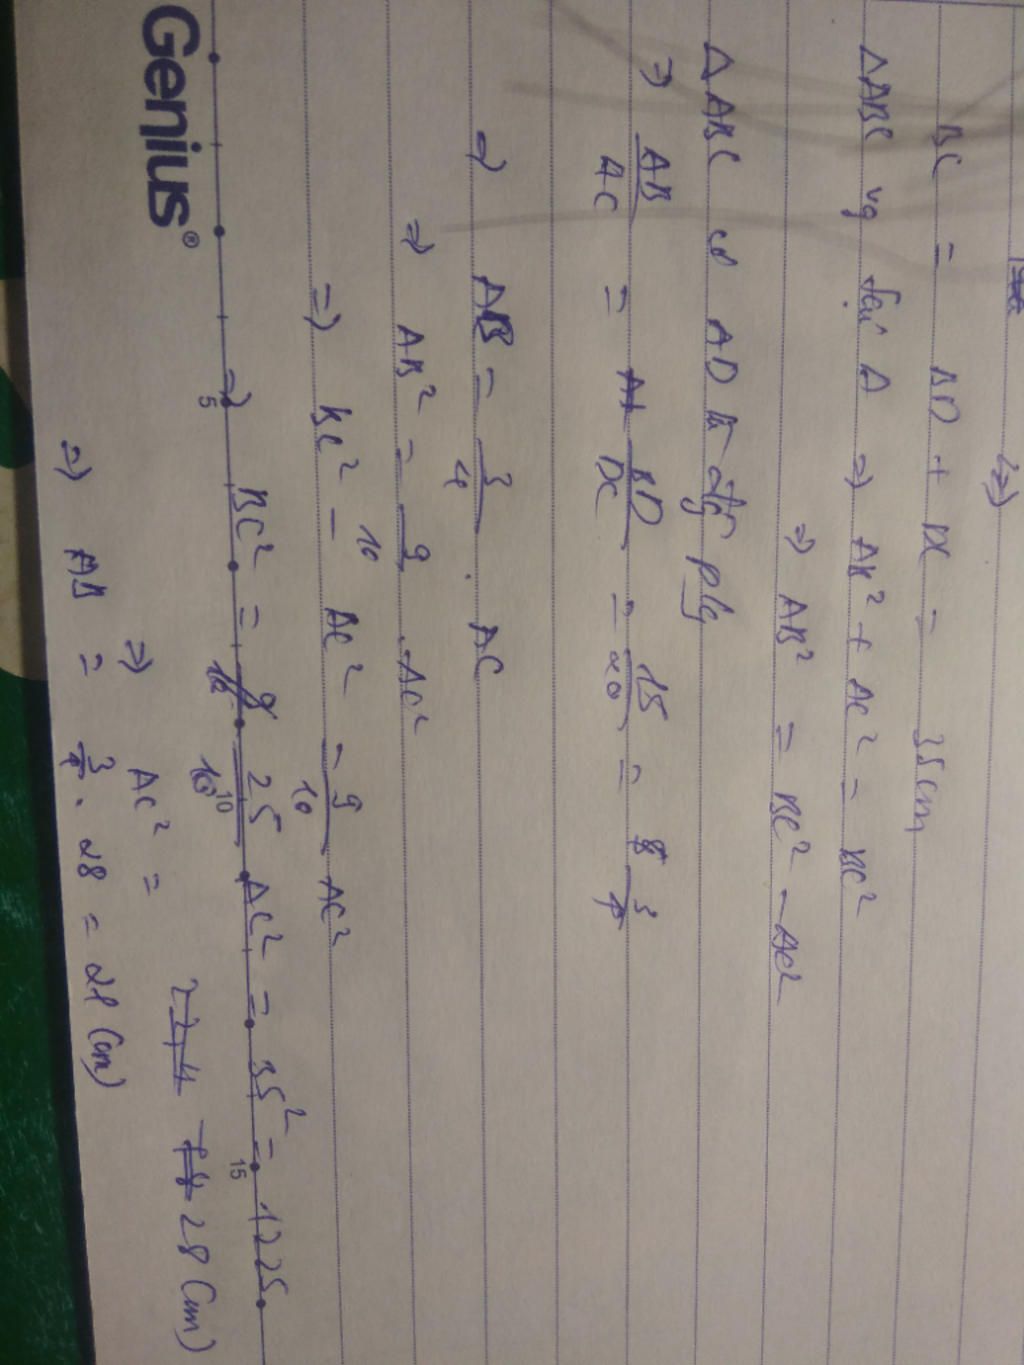 BC = BD + DC = 35cm
ΔABC vg tại A ⇒ AB² + AC² = BC²
⇒ AB² = BC² - AC²
ΔABC có AD là đg plg
⇒ AB/AC = BD/DC = 15/20 = 3/4
⇒ AB = 3/4 . AC
⇒ AB² = 9/16 . AC²
⇒ BC² - AC² = 9/16 AC²
⇒ BC² = 25/16 AC² = 35² = 1225
⇒ AC² = 28 (cm)
⇒ AB = 3/4 . 28 = 21 (cm)
5 10 15
Genius®